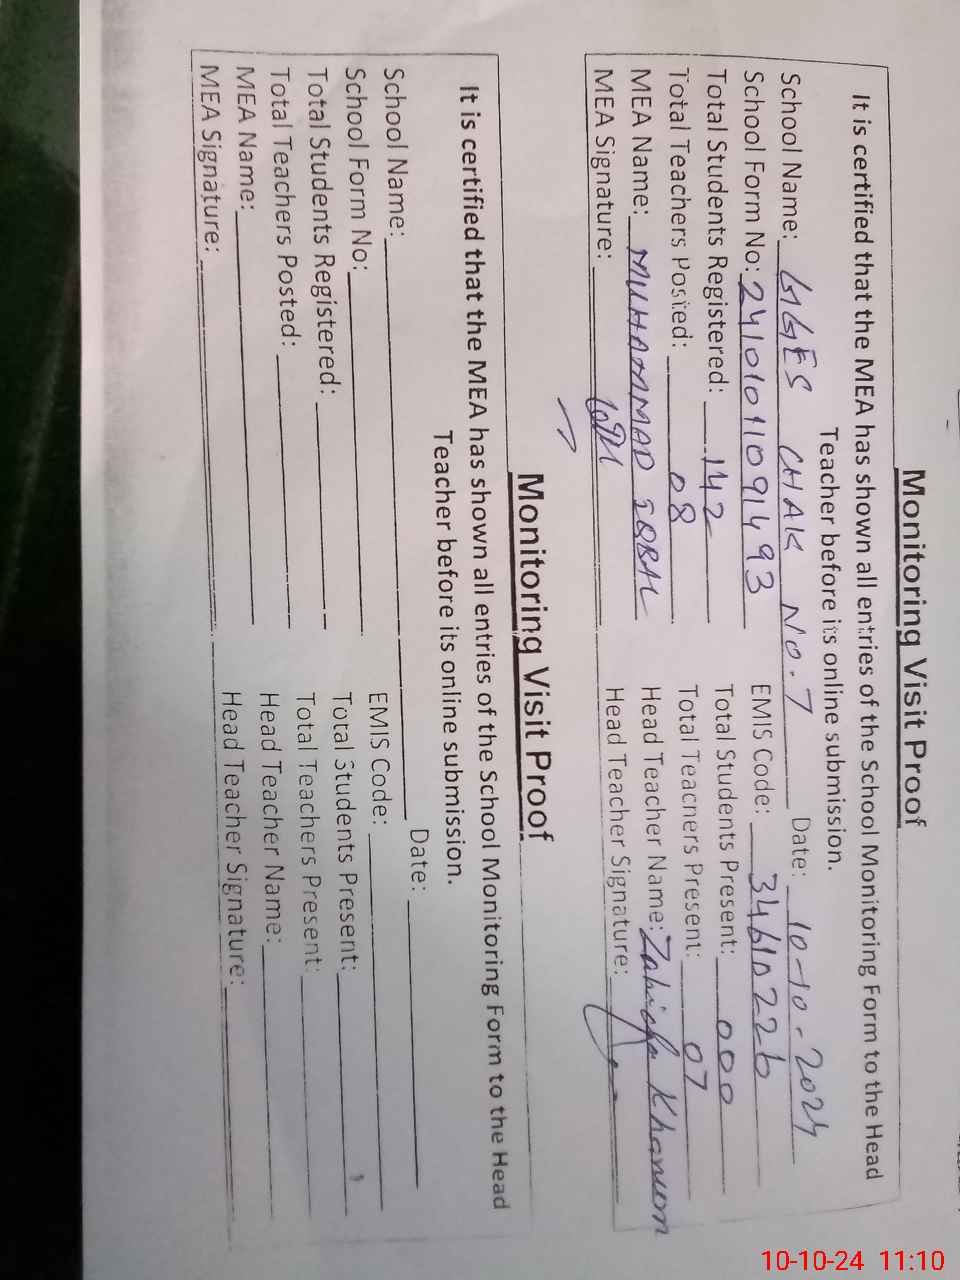 Monitoring Visit Proof
It is certified that the MEA has shown all entries of the School Monitoring Form to the Head
Teacher before its online submission.
School Name: GGES CHAK NO.7 Date: 10-10-2024
School Form No: 24101011091493 EMIS Code: 34610226
Total Students Registered: 142 Total Students Present: 000
Total Teachers Posted: 08 Total Teachers Present: 07
MEA Name: MUHAMMAD IQBAL Head Teacher Name: Zahida Khanum
MEA Signature: Head Teacher Signature:
Monitoring Visit Proof
It is certified that the MEA has shown all entries of the School Monitoring Form to the Head
Teacher before its online submission.
School Name: Date:
School Form No: EMIS Code:
Total Students Registered: Total Students Present:
Total Teachers Posted: Total Teachers Present:
MEA Name: Head Teacher Name:
MEA Signature: Head Teacher Signature:
10-10-24 11:10